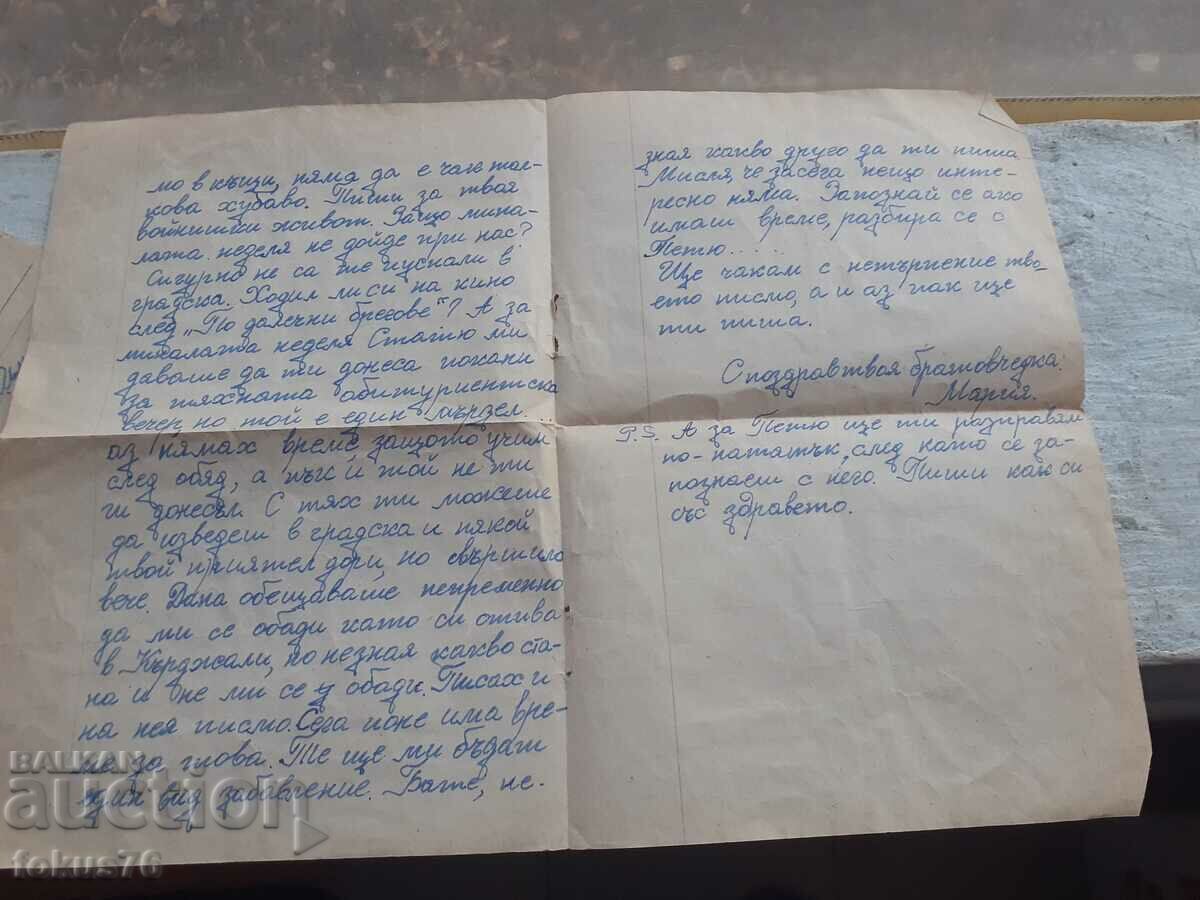 мо в къщи, няма да е чак тол-
кова хубаво. Пиши за твоя
войнишки живот. Защо мина-
лата неделя не дойде при нас?
Сигурно не са те пуснали в
градска. Ходил ли си на кино
след „По далечни брегове"? А за
миналата неделя Статю ми
даваше да ти донеса покани
за тяхната абитуриентска
вечер, но той е един мързел.
аз нямах време, защото учим
след обяд, а пък и той не ти
ги донесъл. С тях ти можеше
да изведеш в градска и някой
твой приятел дори, но свършило
вече. Дана обещаваше непременно
да ми се обади като си отива
в Кърджали, но незная какво ста-
на и не ми се обади. Писах и
на нея писмо. Сега поне има вре-
ме за това. Те ще ми бъдат
един вид забавление. Бате, не-
зная какво друго да ти пиша
Мисля, че засега нещо инте-
ресно няма. Запознай се ако
имаш време, разбира се с
Петю.....
Ще чакам с нетърпение тво-
ето писмо, а и аз пак ще
ти пиша.
С поздрав твоя братовчедка:
Мария.
P.S. А за Петю ще ти разправям
по-нататък, след като се за-
познаеш с него. Пиши как си
със здравето.
BALKAN
auction
fokus76